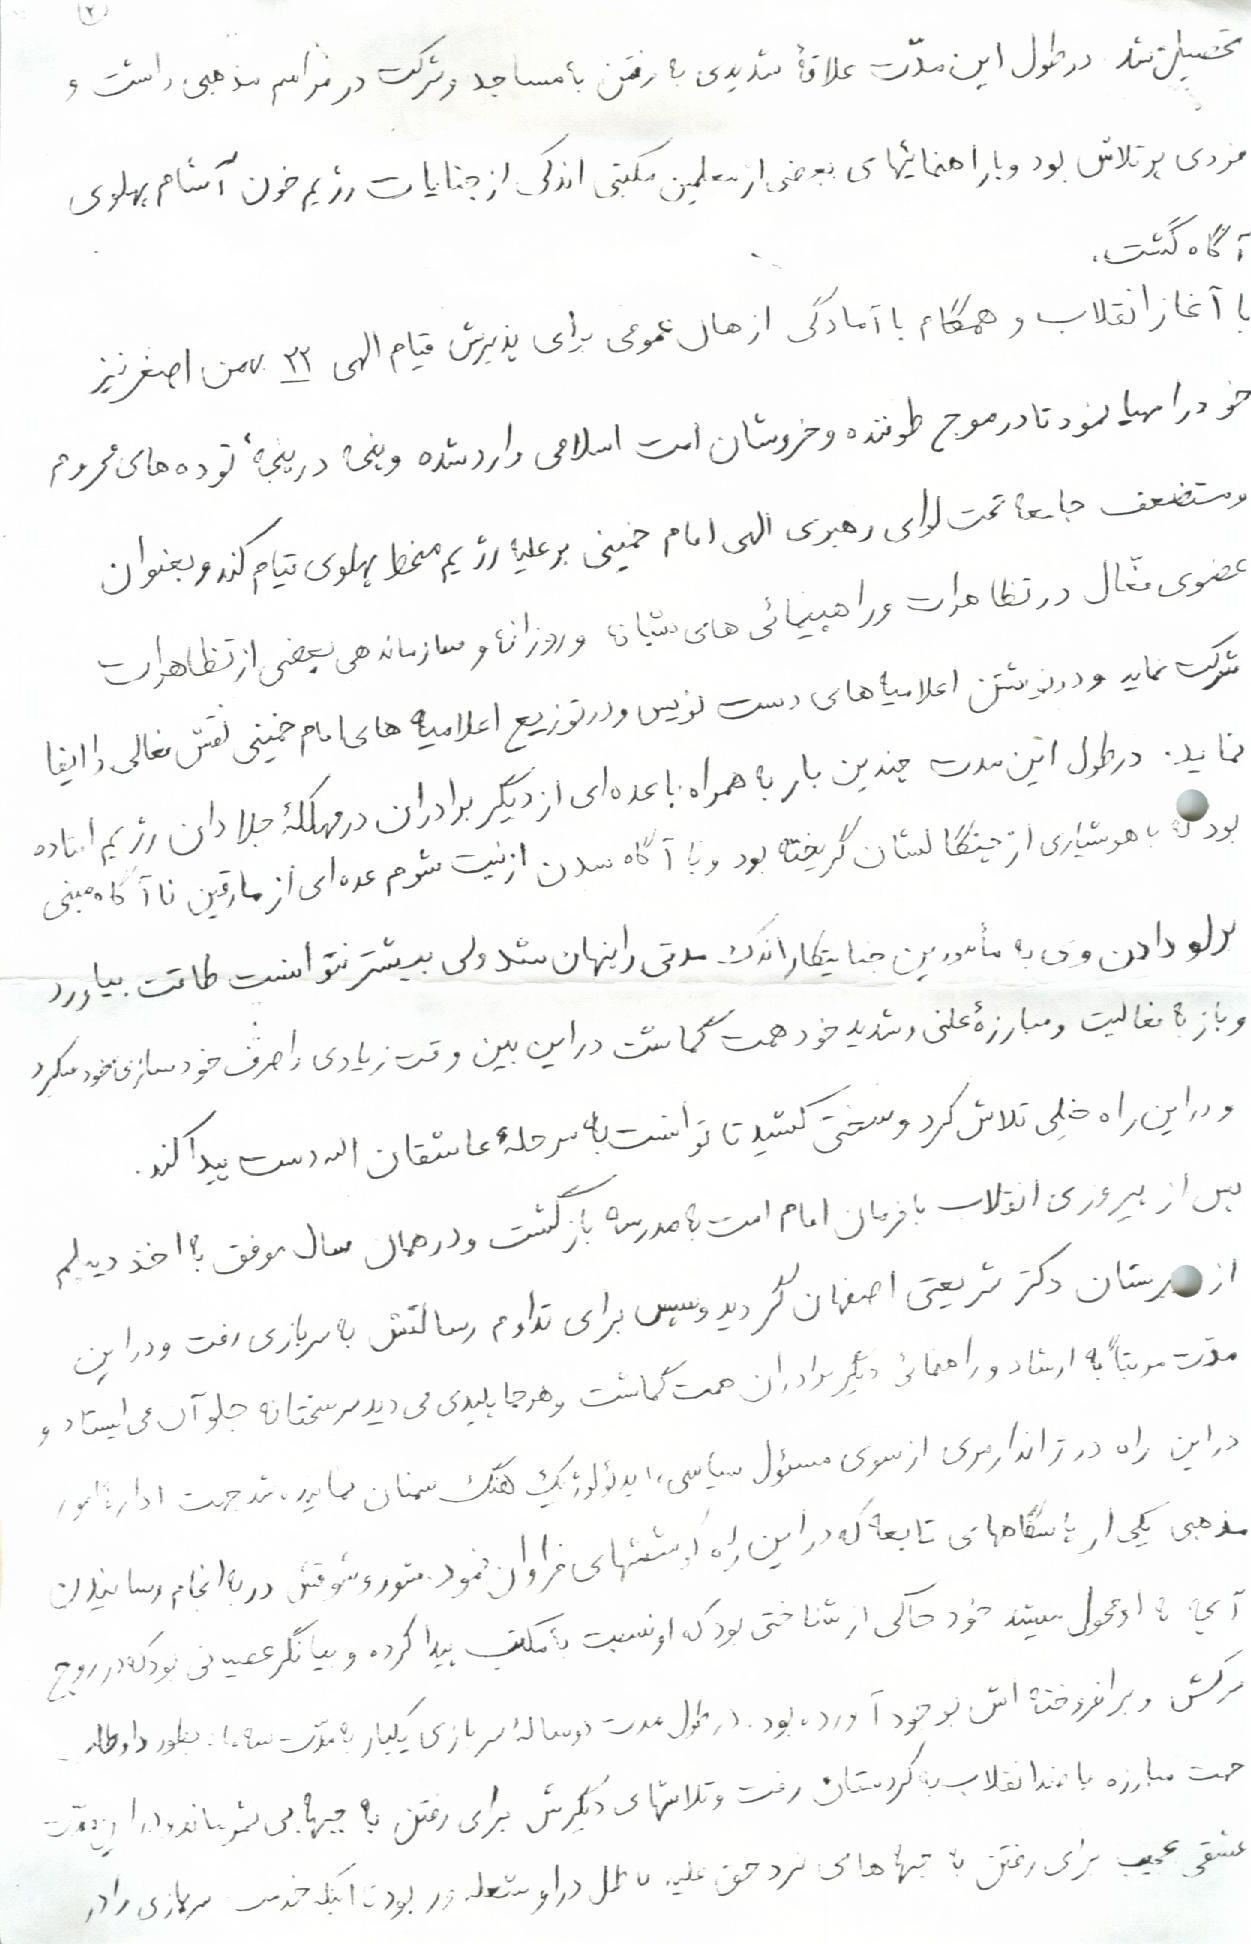 ۲
تحصیل شد. در طول این مدّت علاقهٔ شدیدی به رفتن به مساجد و شرکت در مراسم مذهبی داشت و
فردی پر تلاش بود و با راهنمائیهای بعضی از معلمین مکتبی اندکی از جنایات رژیم خون آشام پهلوی
آگاه گشت.
با آغاز انقلاب و همگام با آمادگی اذهان عمومی برای پذیرش قیام الهی ۲۲ بهمن اصغر نیز
خود را مهیا نمود تا در موج طوفنده و خروشان امت اسلامی وارد شده و پنجه در پنجهٔ توده های محروم
و مستضعف جامعه تحت لوای رهبری الهی امام خمینی بر علیه رژیم منحط پهلوی قیام کند و بعنوان
عضوی فعّال در تظاهرات و راهپیمائی های شبانه و روزانه و سازماندهی بعضی از تظاهرات
شرکت نماید و در نوشتن اعلامیه های دست نویس و در توزیع اعلامیه های امام خمینی نقش فعالی را ایفا
نماید. در طول این مدت چندین بار به همراه با عده ای از دیگر برادران در مهلکهٔ جلادان رژیم افتاده
بود که با هوشیاری از چنگالشان گریخته بود و با آگاه شدن از نیت شوم عده ای از مارقین ناآگاه مبنی
بر لو دادن وی به مأمورین جنایتکار اندک مدتی را پنهان شد ولی بیشتر نتوانست طاقت بیاورد
و باز به فعالیت و مبارزهٔ علنی و شدید خود همت گماشت در این بین وقت زیادی را صرف خودسازی خود میکرد
و در این راه خیلی تلاش کرد و سختی کشید تا توانست به مرحلهٔ عاشقان الله دست پیدا کند.
پس از پیروزی انقلاب با فرمان امام امت به مدرسه بازگشت و در همان سال موفق به اخذ دیپلم
از دبیرستان دکتر شریعتی اصفهان گردید و سپس برای تداوم رسالتش به سربازی رفت و در این
مدّت مرتباً به ارشاد و راهنمائی دیگر برادران همت گماشت و هرجا پلیدی می دید سرسختانه جلو آن می ایستاد و
در این راه در ژاندارمری از سوی مسئول سیاسی، ایدئولوژیک هنگ سمنان نماینده شد جهت اداره امور
مذهبی یکی از پاسگاههای تابعه که در این راه کوششهای فراوان نمود. شور و شوقش در به انجام رسانیدن
آنچه به او محول میشد خود حاکی از شناختی بود که او نسبت به مکتب پیدا کرده و بیانگر بود که در روح
سرکش و برافروخته اش بوجود آورده بود. در طول مدت دوسالهٔ سربازی یکبار به مدّت سه ماه بطور داوطلب
جهت مبارزه با ضد انقلاب به کردستان رفت و تلاشهای دیگرش برای رفتن به جبهه بی ثمر ماند و در این مدّت
عشقی عجیب برای رفتن به جبهه های نبرد حق علیه باطل در او شعله ور بود تا اینکه خدمت سربازی را در